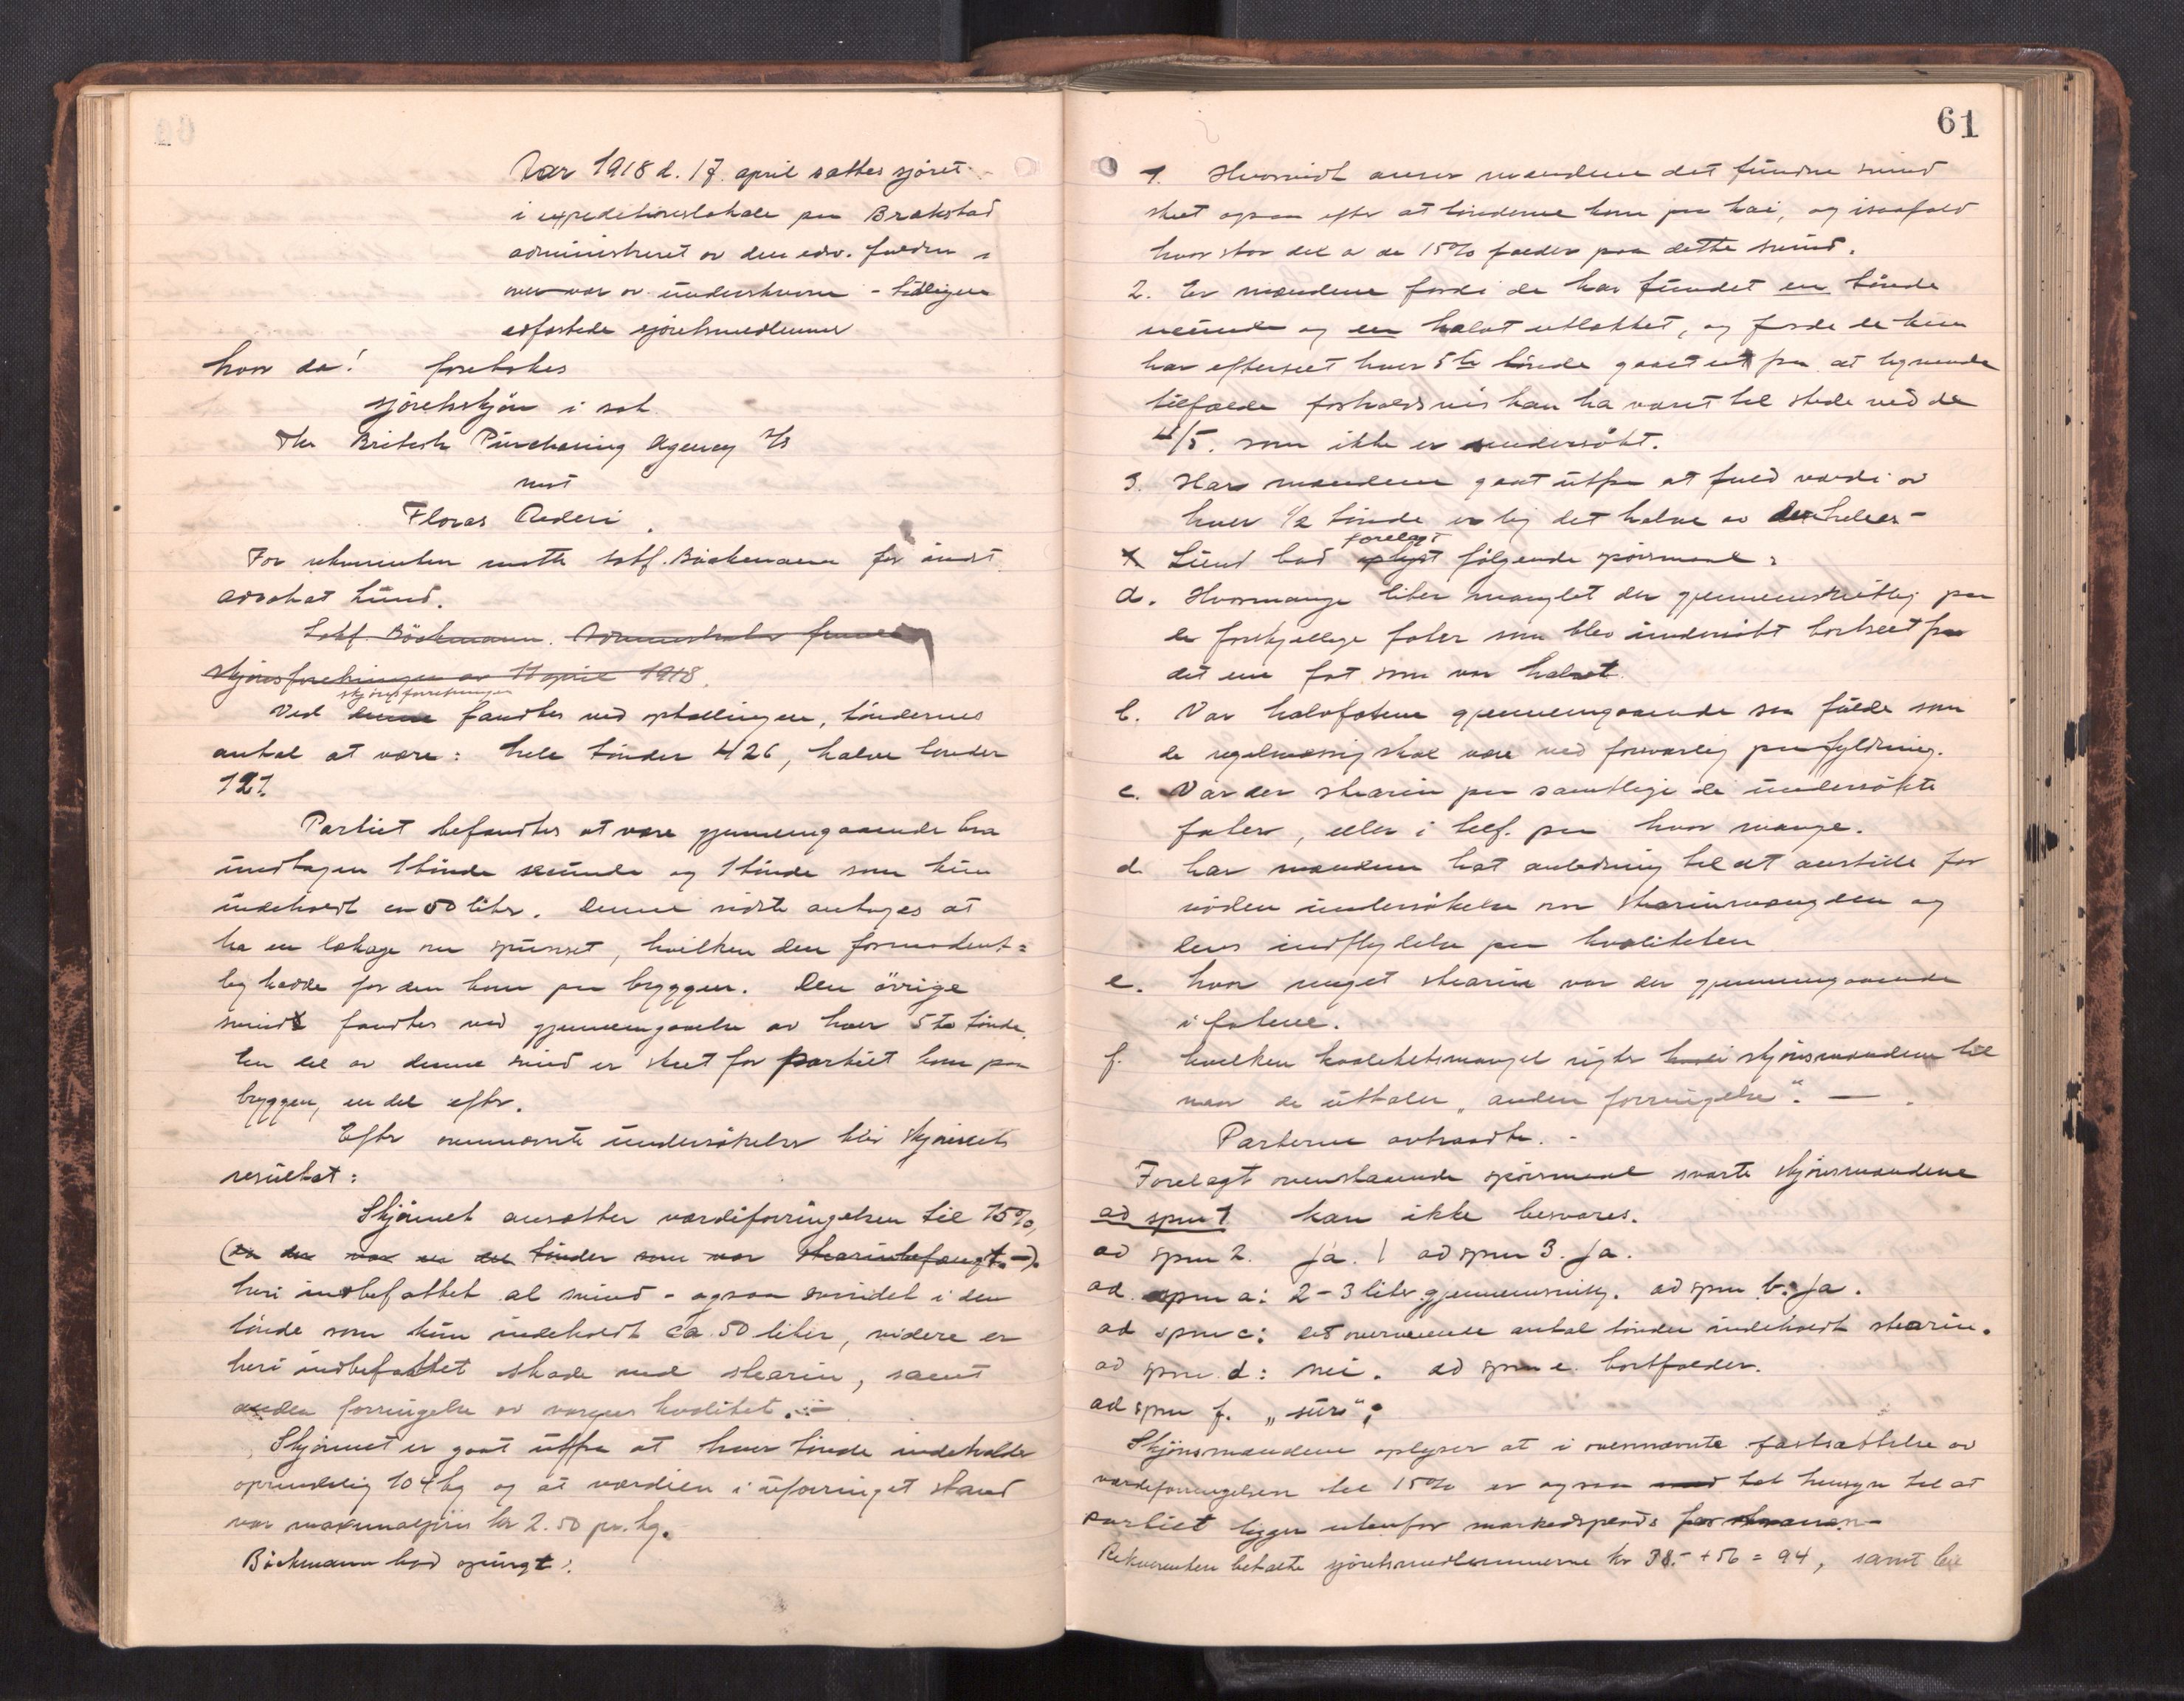 Aar 1918 d. 17. april sattes sjøret
i expeditionslokale paa Brakstad
administreret av den edsv. fuldm
overvær av underskrevne - tidligere
edfæstede sjøretsmedlemmer
hvor da! foretokes
sjøretsskjøn i sak
The British Purchasing Agency A/S
mot
Floras Rederi.
For rekvirenten møtte sakf. Böckmann for
advokat Lund.
Sakf. Böckmann. Administrator
Skjønsforretningen av 11 april 1918.
skjønsforretningen
Ved denne fandtes ved optællingen, tøndernes
antal at være: hele tønder 426, halve tønder
121.
Partiet befandtes at være gjennemgaaende bra
undtagen 1 tønde og 1 tønde som kun
indeholdt ca 50 liter. Denne sidste antages at
ha en lækage om spunset, hvilken den formodent=
lig hadde før den kom paa bryggen. Den øvrige
svind fandtes ved gjennemgaaelse av hver 5te tønde.
En del av denne svind er skeet før partiet kom paa
bryggen, en del efter.
Efter ovennævnte undersøkelser blev skjønnets
resultat:
Skjønnet ansætter værdiforringelsen til 15%,
(da der var en del tønder som var stearinbefængt. -).
heri indbefattet al svind - ogsaa svindet i den
tønde som kun indeholdt ca. 50 liter, videre er
heri indbefattet skade ved stearin, samt
anden forringelse av varens kvalitet.
Skjønnet er gaat utfra at hver tønde indeholder
oprindelig 104 kg og at værdien i uforringet stand
var maximalpris kr 2.50 pr. kg.
Böckmann bad spurgt:
61
1. Hvorvidt anser mændene det fundne svind
skeet ogsaa efter at tønderne kom paa kai, og isaafald
hvor stor del av de 15% falder paa dette svind.
2. Er mændene fordi de har fundet en tønde
og en halvt utlækket, og fordi de kun
har efterseet hver 5te tønde gaaet ut fra at lignende
tilfælde forholdsvis kan ha været til stede ved de
4/5. som ikke er undersøkt.
3. Har mændene gaat utfra at fuld værdi av
hver 1/2 tønde er lig det halve av
forelagt
Lund bad oplyst følgende spørsmaal:
a. Hvormange liter manglet der gjennemsnitlig paa
de forskjellige fater som blev undersøkt bortseet fra
det ene fat som var halvt.
b. Var halvfatene gjennemgaaende saa fulde som
de regelmæssig skal være ved forsvarlig paafyldning.
c. Var der stearin paa samtlige de undersøkte
fater, eller i tilf. paa hvor mange.
d. har mændene hat anledning til at anstille for
nøden undersøkelse om stearinmængden og
dens indflydelse paa kvaliteten
e. hvor meget stearin var der gjennemgaaende
i fatene.
f. hvilken kvalitetsmangel sigter skjønsmændene til
naar de uttaler „anden forringelse". —
Parterne avtraadte. -
Forelagt ovenstaaende spørsmaal svarte skjønsmændene
ad spm 1 kan ikke besvares.
ad spm 2. Ja. | ad spm 3. Ja.
ad spm a: 2-3 liter gjennemsnitlig. ad spm b. Ja.
ad spm c: det overveiende antal tønder indeholdt stearin.
ad spm d: nei. ad spm e. bortfalder.
ad spm f. „sur".
Skjønsmændene oplyser at i ovennævnte fastsættelse av
værdiforringelsen til 15% er ogsaa tat hensyn til at
partiet ligger utenfor
Rekvirenten betalte sjøretsmedlemmerne kr 38.- + 56 = 94, samt